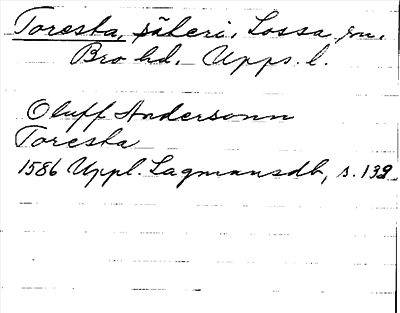 Toresta, säteri, Lossa sn.
Bro hd. Upps. l.
Oluff Andersonn
Toresta
1586 Uppl. Lagmansdb, s. 139